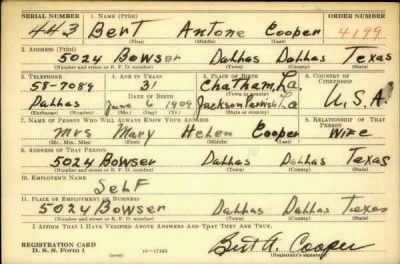 SERIAL NUMBER 1. NAME (Print) ORDER NUMBER
443 Bert Antone Cooper 4199
(First) (Middle) (Last)
2. ADDRESS (Print)
5024 Bowser Dallas Dallas Texas
(Number and street or R. F. D. number) (Town) (County) (State)
3. TELEPHONE 4. AGE IN YEARS 5. PLACE OF BIRTH 6. COUNTRY OF CITIZENSHIP
58-7089 31 Chatham, La.
DATE OF BIRTH (Town or county)
Dallas June 6 1909 Jackson Parish La U.S.A.
(Exchange) (Number) (Mo.) (Day) (Yr.) (State or country)
7. NAME OF PERSON WHO WILL ALWAYS KNOW YOUR ADDRESS 8. RELATIONSHIP OF THAT PERSON
Mrs Mary Helen Cooper Wife
(Mr., Mrs., Miss) (First) (Middle) (Last)
9. ADDRESS OF THAT PERSON
5024 Bowser Dallas Dallas Texas
(Number and street or R. F. D. number) (Town) (County) (State)
10. EMPLOYER'S NAME
Self
11. PLACE OF EMPLOYMENT OR BUSINESS
5024 Bowser Dallas Dallas Texas
(Number and street or R. F. D. number) (Town) (County) (State)
I AFFIRM THAT I HAVE VERIFIED ABOVE ANSWERS AND THAT THEY ARE TRUE.
REGISTRATION CARD
D. S. S. Form 1 (over) Bert A. Cooper
(Registrant's signature)